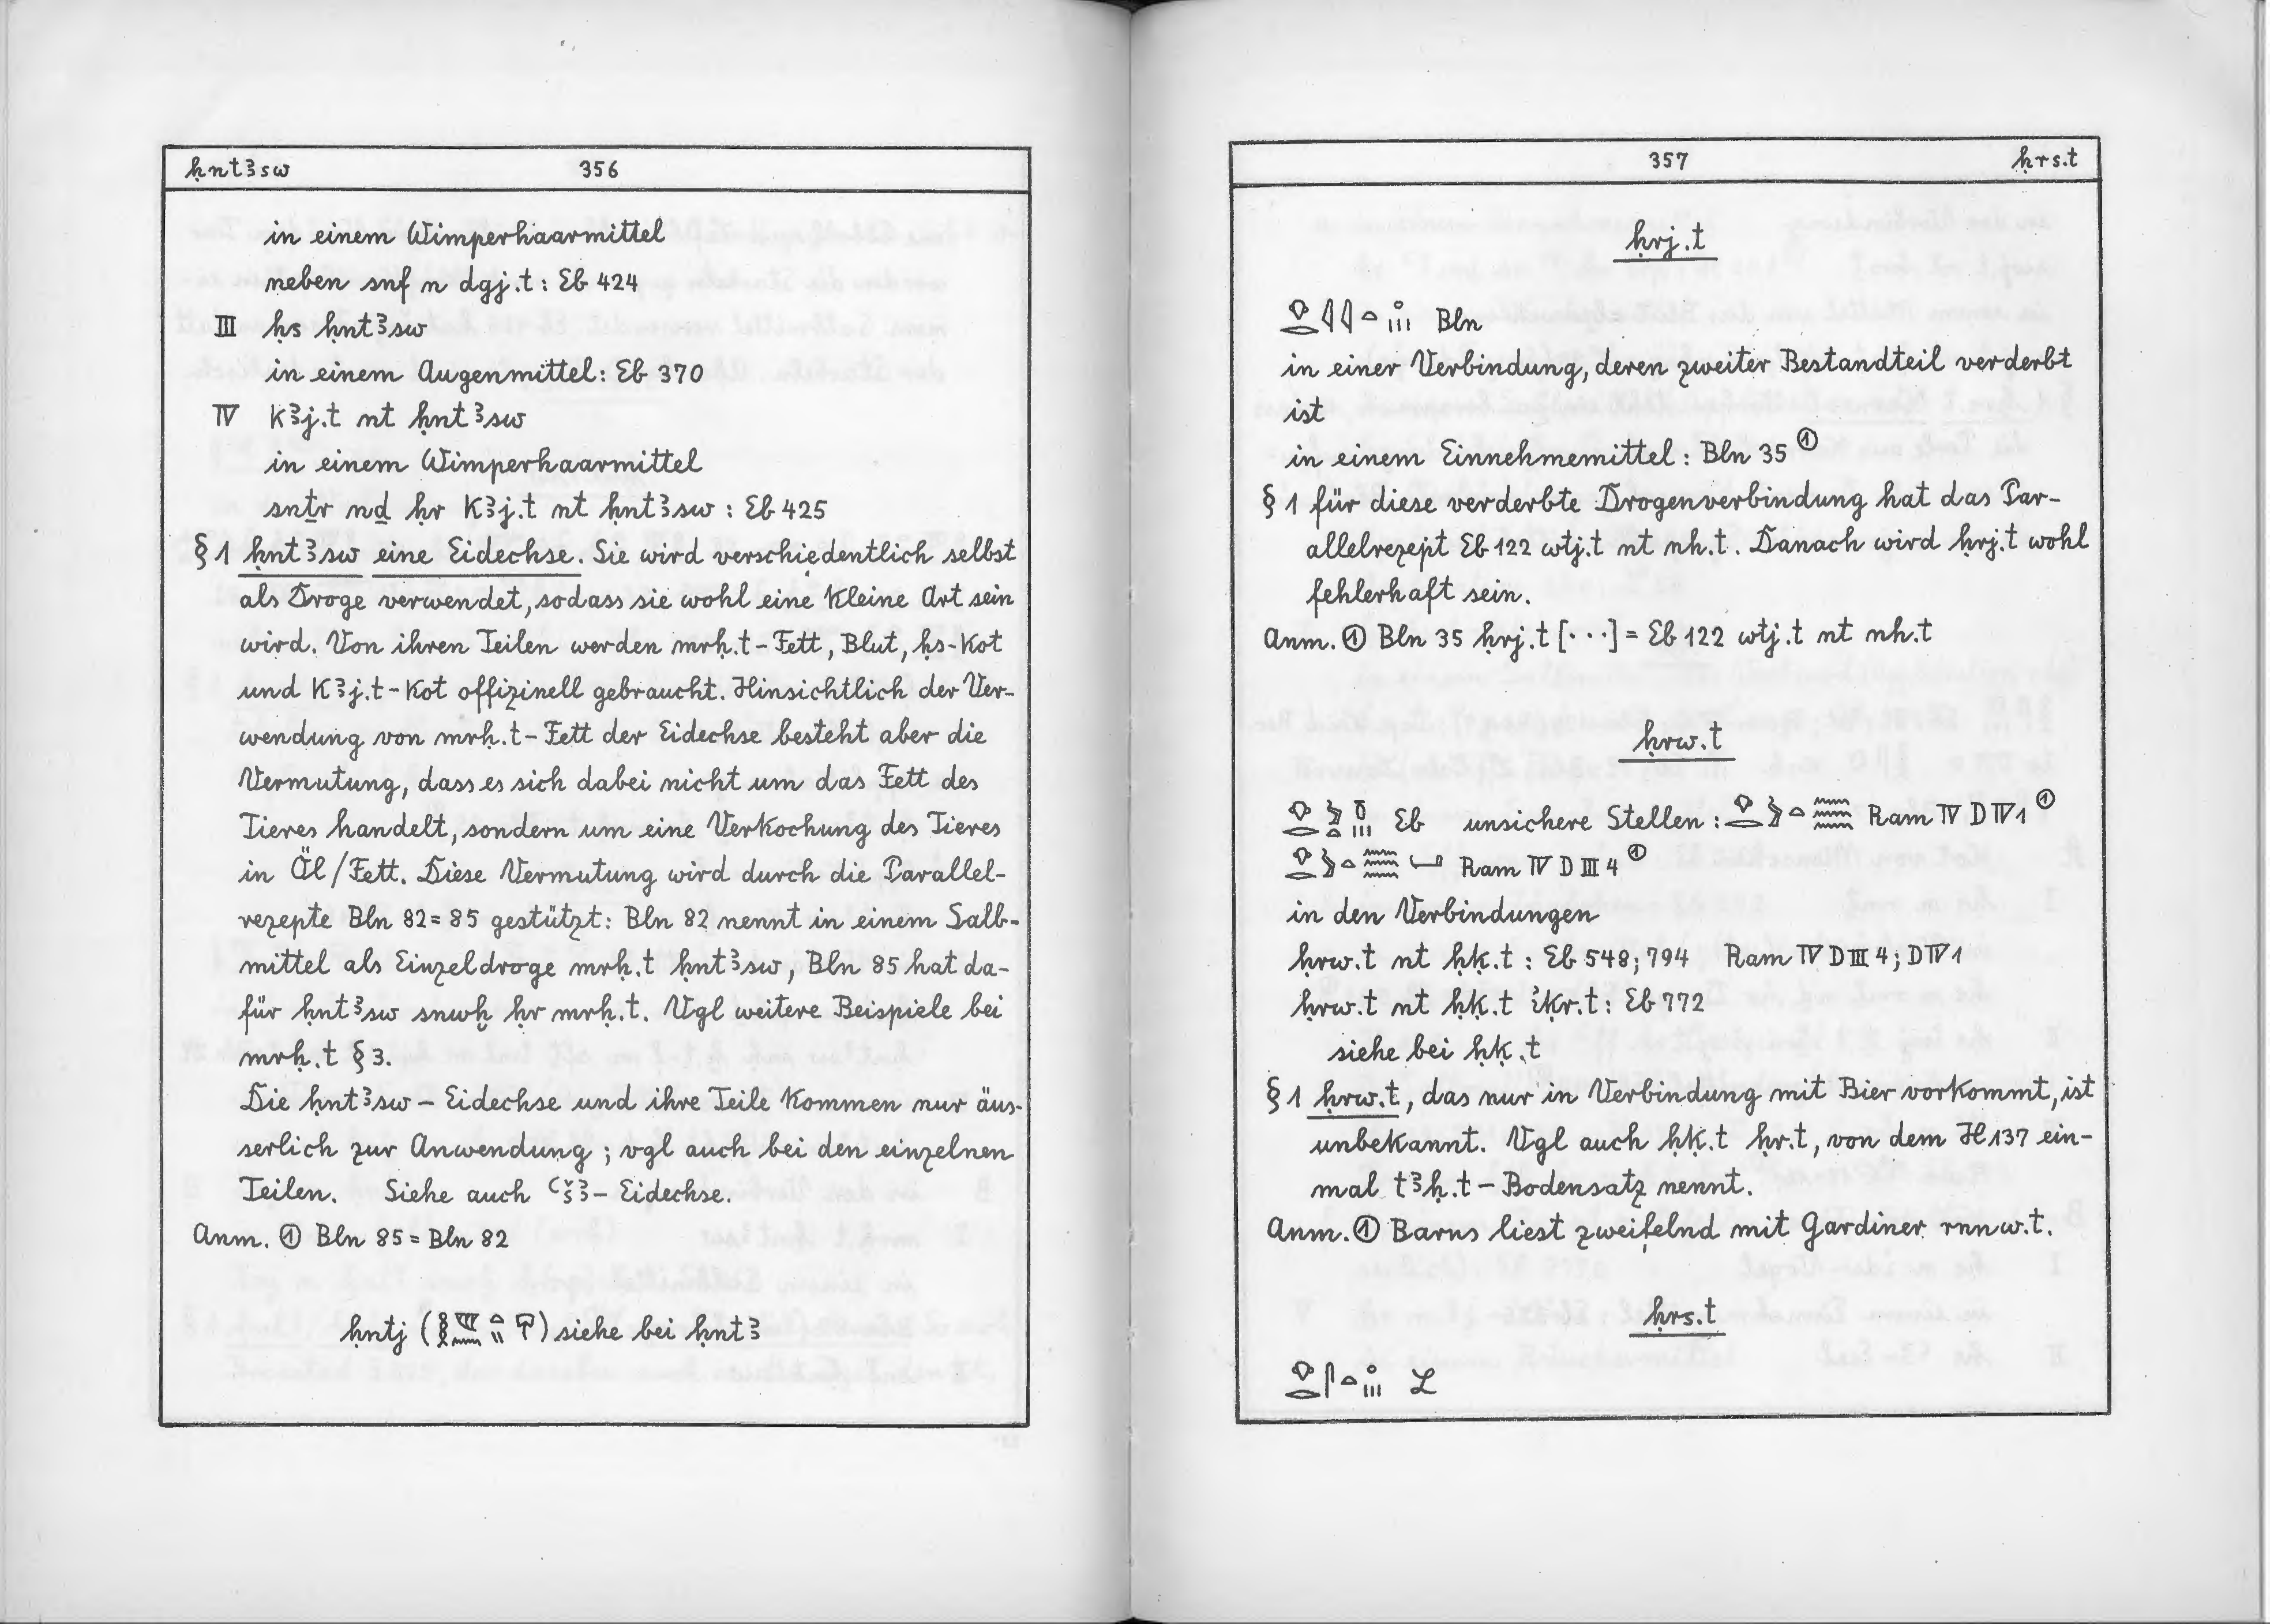 ḥntꜣsw 356
in einem Wimperhaarmittel
neben snf n dgj.t : Eb 424
III ḥs ḥntꜣsw
in einem Augenmittel : Eb 370
IV kꜣj.t nt ḥntꜣsw
in einem Wimperhaarmittel
snṯr nḏ ḥr kꜣj.t nt ḥntꜣsw : Eb 425
§ 1 ḥntꜣsw eine Eidechse. Sie wird verschiedentlich selbst
als Droge verwendet, sodass sie wohl eine kleine Art sein
wird. Von ihren Teilen werden mrḥ.t-Fett, Blut, ḥs-Kot
und kꜣj.t-Kot offizinell gebraucht. Hinsichtlich der Ver-
wendung von mrḥ.t-Fett der Eidechse besteht aber die
Vermutung, dass es sich dabei nicht um das Fett des
Tieres handelt, sondern um eine Verkochung des Tieres
in Öl/Fett. Diese Vermutung wird durch die Parallel-
rezepte Bln 82 = 85 gestützt: Bln 82 nennt in einem Salb-
mittel als Einzeldroge mrḥ.t ḥntꜣsw, Bln 85 hat da-
für ḥntꜣsw snwḫ ḥr mrḥ.t. Vgl weitere Beispiele bei
mrḥ.t § 3.
Die ḥntꜣsw - Eidechse und ihre Teile kommen nur äus-
serlich zur Anwendung ; vgl auch bei den einzelnen
Teilen. Siehe auch ꜥšꜣ - Eidechse.
Anm. ① Bln 85 = Bln 82
ḥntj ( ) siehe bei ḥntꜣ
357 ḥrs.t
ḥrj.t
Bln
in einer Verbindung, deren zweiter Bestandteil verderbt
ist
in einem Einnehmemittel : Bln 35 ①
§ 1 für diese verderbte Drogenverbindung hat das Par-
allelrezept Eb 122 wtj.t nt nh.t. Danach wird ḥrj.t wohl
fehlerhaft sein.
Anm. ① Bln 35 ḥrj.t [···] = Eb 122 wtj.t nt nh.t
ḥrw.t
Eb unsichere Stellen : Ram IV D IV 1 ①
Ram IV D III 4 ①
in den Verbindungen
ḥrw.t nt ḥḳ.t : Eb 548; 794 Ram IV D III 4; D IV 1
ḥrw.t nt ḥḳ.t ỉḳr.t : Eb 772
siehe bei ḥḳ.t
§ 1 ḥrw.t, das nur in Verbindung mit Bier vorkommt, ist
unbekannt. Vgl auch ḥḳ.t ḥr.t, von dem H 137 ein-
mal tꜣḥ.t - Bodensatz nennt.
Anm. ① Barns liest zweifelnd mit Gardiner rnnw.t.
ḥrs.t
L